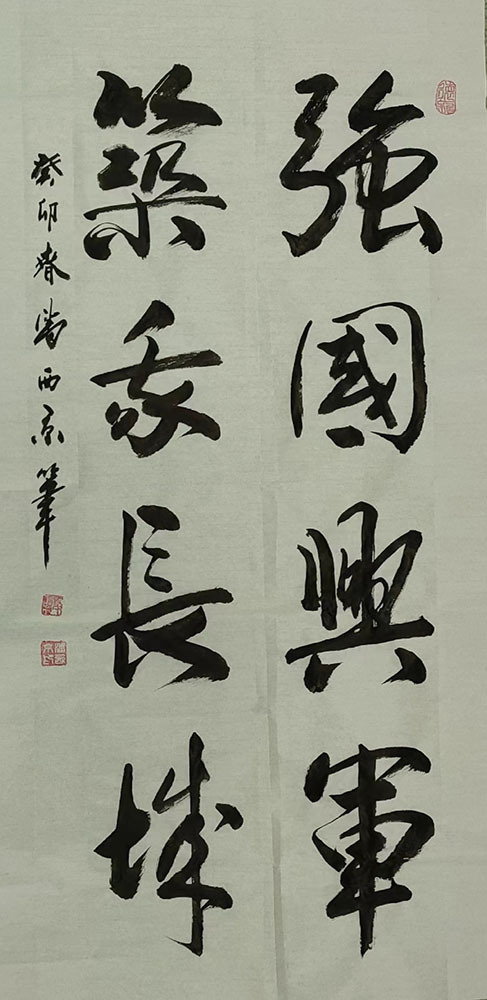 強國興軍
築我長城
癸卯春 西 筆